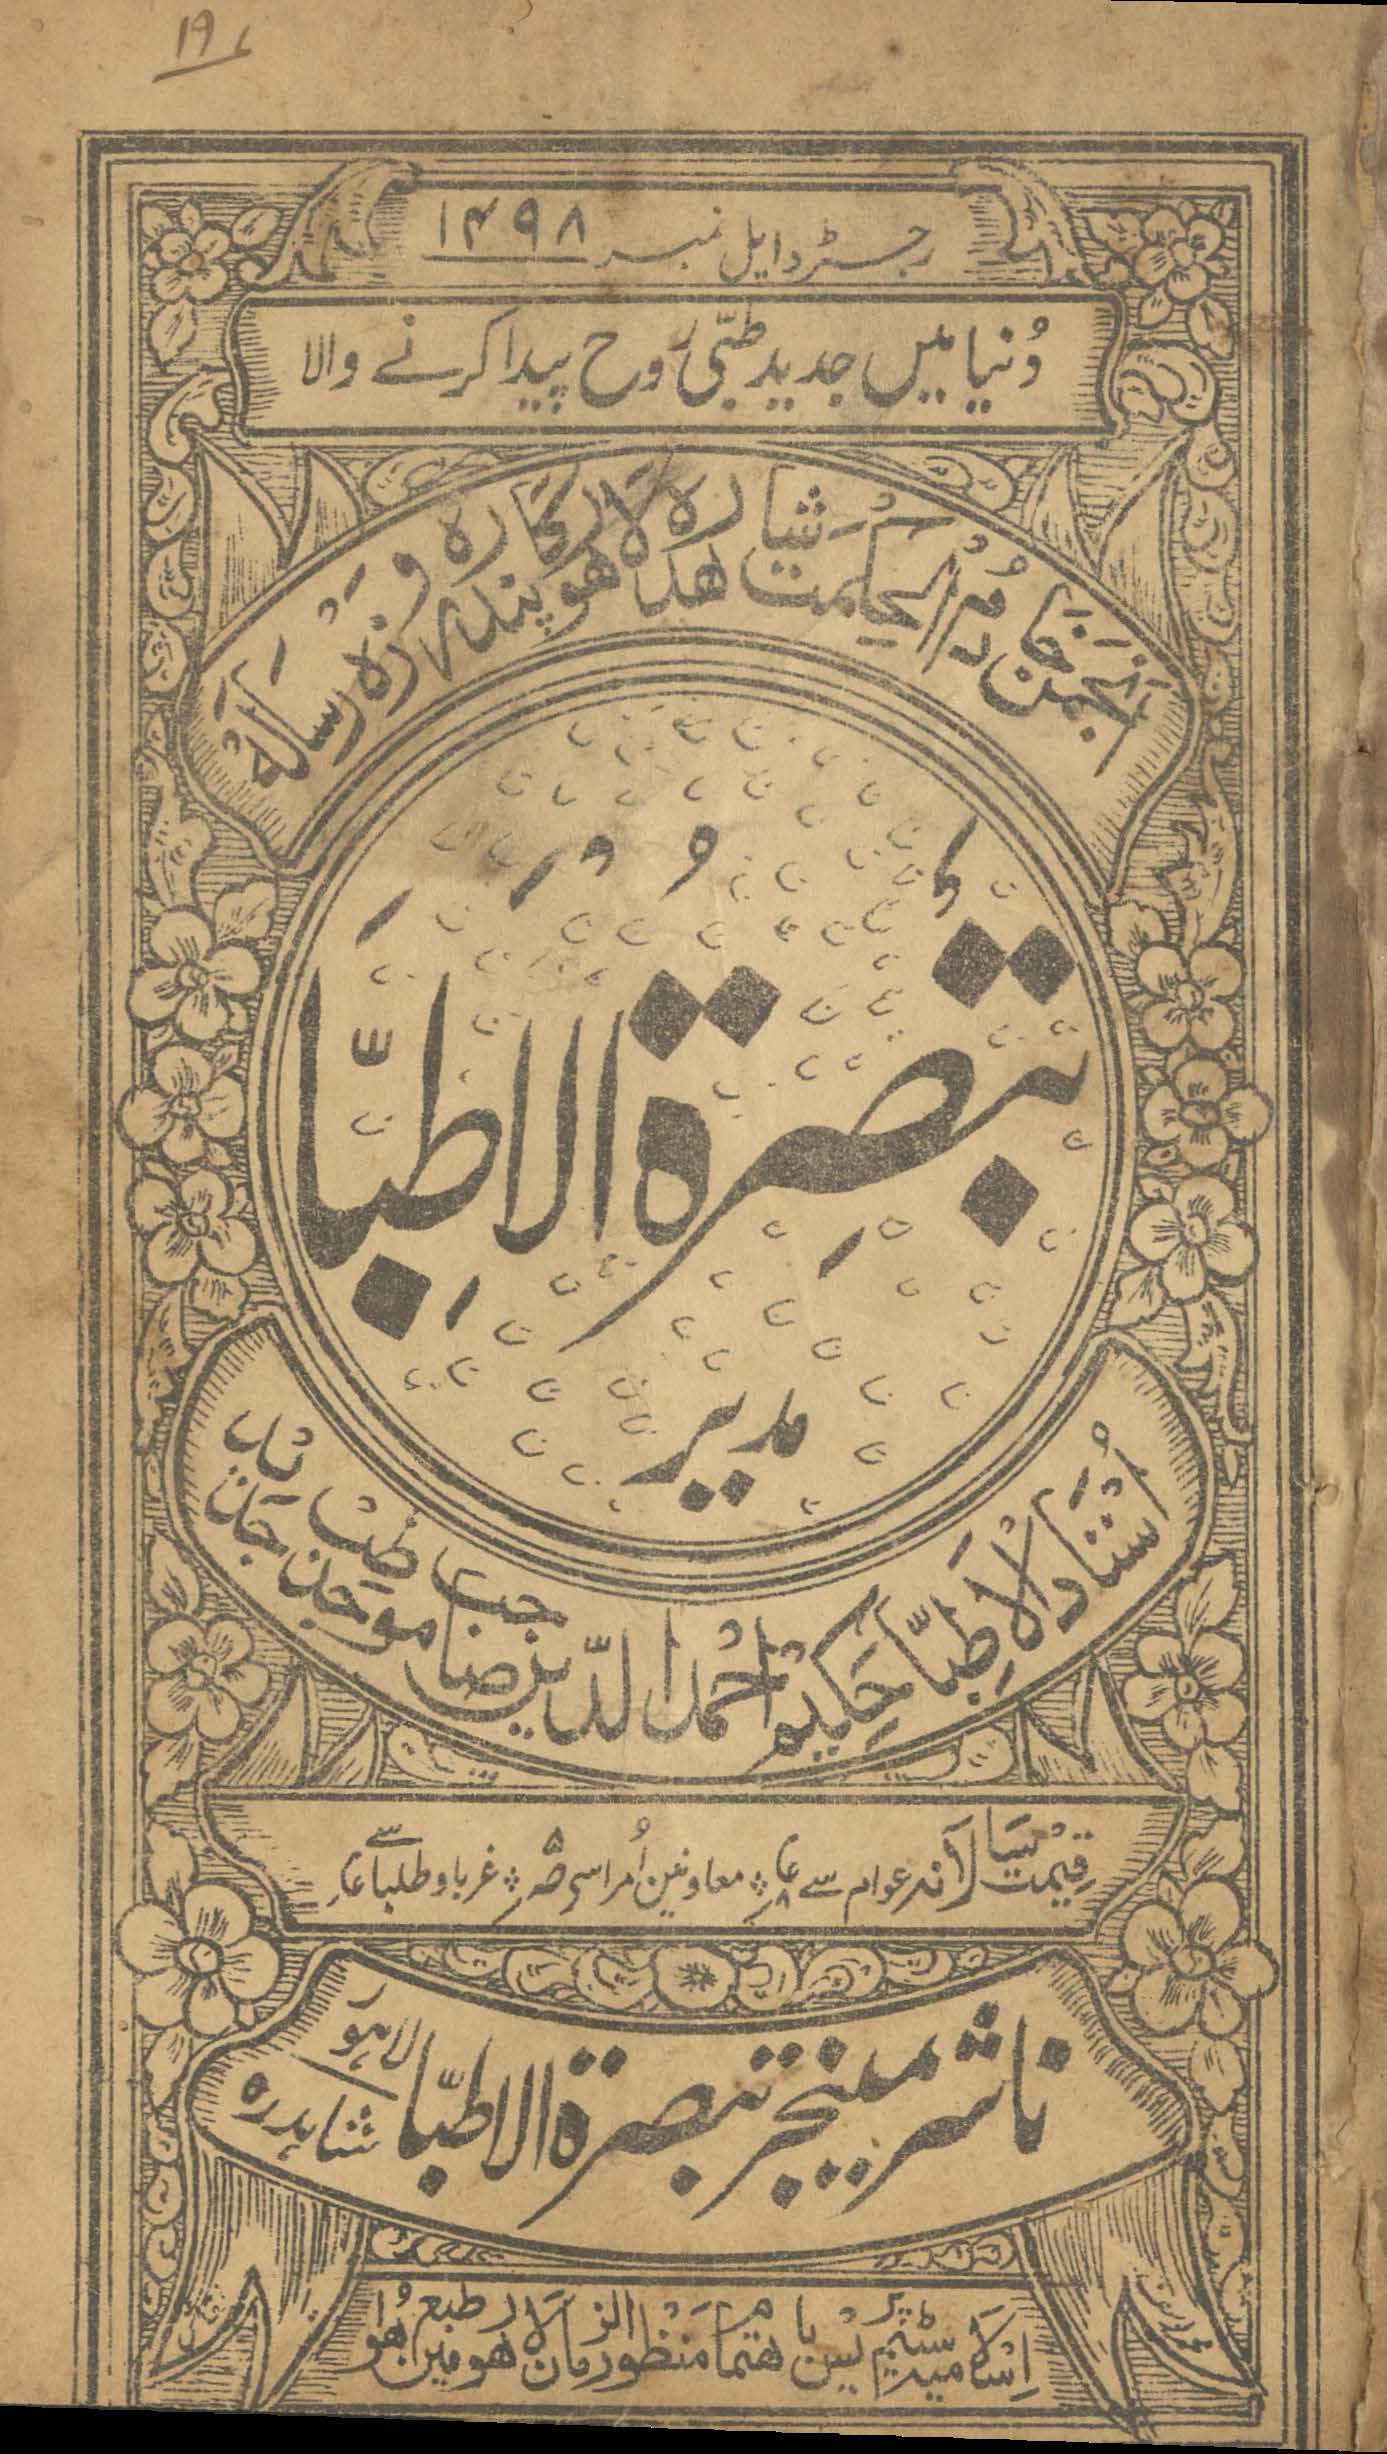 رجسٹرڈ ایل نمبر ۱۴۹۸
دُنیا میں جدید طبّی روح پیدا کرنے والا
انجمن خادم الحکمت شاہدرہ لاہور کا پندرہ روزہ رسالہ
تبصرۃ الاطبّا
مدیر
اُستاد الاطبّا حکیم احمد الدین صاحب موجد طب جدید
قیمت سالانہ عوام سے معاونین اُمرا سے غربا و طلبا سے
ناشر مینیجر تبصرۃ الاطبّا شاہدرہ لاہور
اسلامیہ سٹیم پریس لاہور میں باہتمام منظور الزمان طبع ہوا